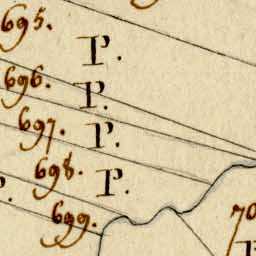 695.
P.
696.
P.
697.
P.
698.
P.
P.
699.
70
P